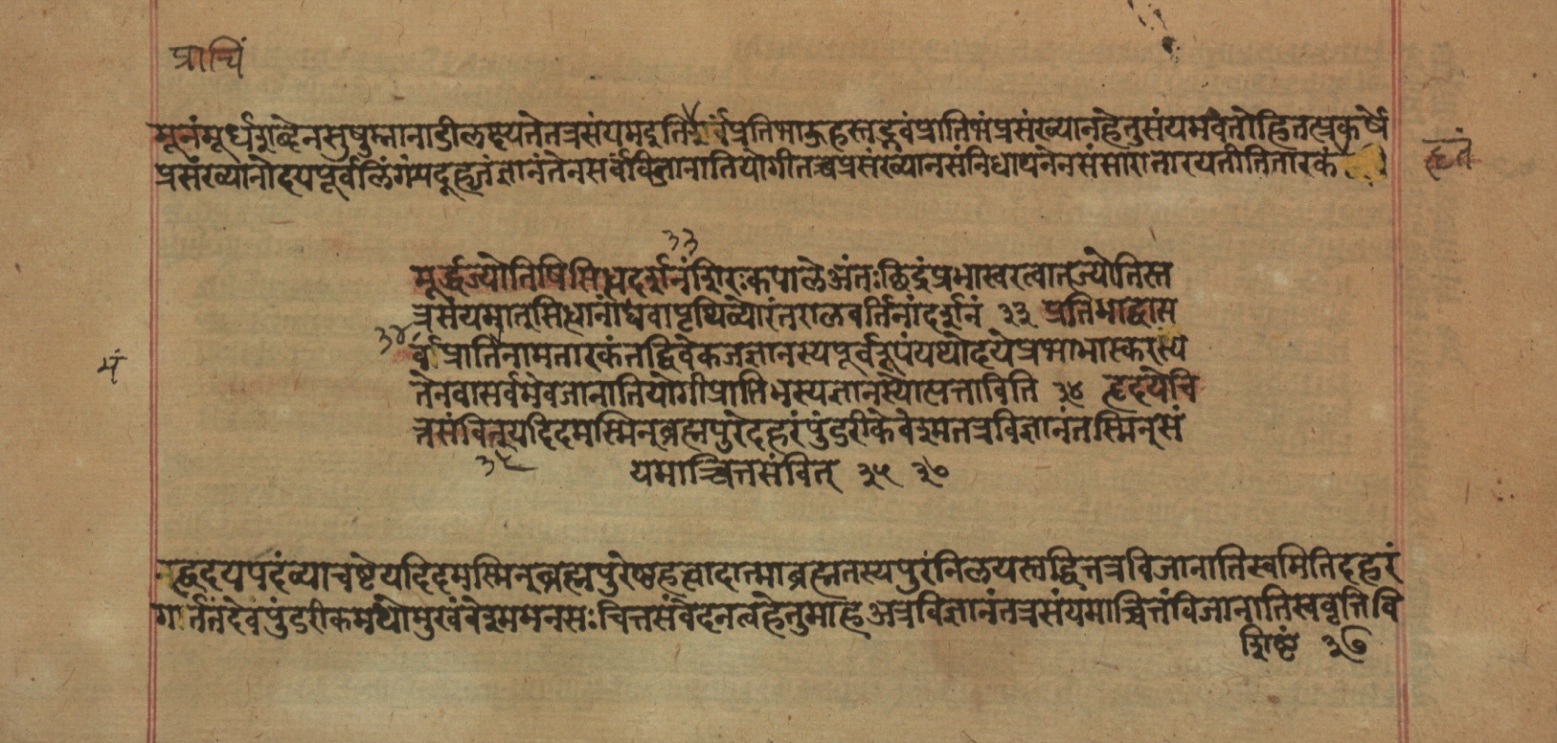 प्राचिं
मूलंमूर्धशब्देनसुषुम्नानाडीलक्ष्यतेतत्रसंयमदुतिसर्वंप्रतिभाऊहस्तद्भवंप्रातिभंप्रसंख्यानंहेतुसंयमवतोहितत्प्रकर्षे
प्रसंख्यानोदयपूर्वलिंगंयदूहजंज्ञानंतेनसर्वंविजानातियोगीतच्चप्रसंख्यानसंनिधापनेनसंसारात्तारयतीतितारकं
३३
मूर्द्धज्योतिषिसिधदर्शनंशिरःकपालेअंतःछिद्रंप्रभास्वरत्वात्ज्योतिस्त
त्रसंयमात्सिधानांद्यावापृथिव्योरंतरालवर्तिनांदर्शनं ३३ प्रतिभाद्वास
३४
र्वंप्रातिनामतारकंतद्विवेकजज्ञानस्यपूर्वरूपंयथोदयेप्रभाभास्करस्य
तेनवासर्वमेवजानातियोगीप्रातिभस्यज्ञानस्योत्पत्ताविति ३४ हृदयेचि
त्तसंवित्यदिदमस्मिन्ब्रह्मपुरेदहरंपुंडरीकेवेश्मतत्रविज्ञानंतस्मिन्सं
३५
यमाच्चित्तसंवित् ३५ ३७
हृदयपदंव्याचष्टेयदिदमस्मिन्ब्रह्मपुरेबृहत्वादात्माब्रह्मतस्यपुरंनिलयस्तद्धितत्रविजानातिस्वमितिदहरं
गर्तंतदेवपुंडरीकमधोमुखंवेश्ममनसःचित्तसंवेदनत्वेहेतुमाहअत्रविज्ञानंतत्रसंयमाच्चित्तंविजानातिस्ववृत्तिवि
शिष्टं ३७